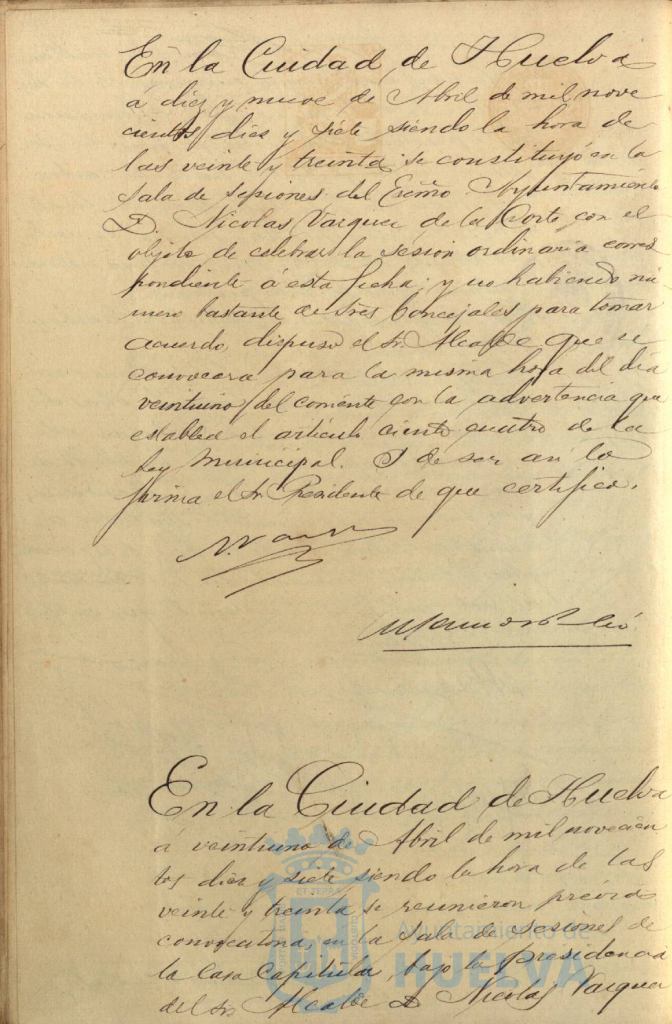 En la Ciudad de Huelva
á diez y nueve de Abril de mil nove
cientos diez y siete siendo la hora de
las veinte y treinta se constituyó en la
Sala de sesiones del Excmo Ayuntamiento
D. Nicolas Vazquez de la Corte con el
objeto de celebrar la sesion ordinaria corres
pondiente á esta fecha; y no habiendo nú
mero bastante de Sres Concejales para tomar
acuerdo, dispuso el Sr. Alcalde que se
convocara para la misma hora del dia
veintiuno del corriente con la advertencia que
establece el artículo ciento cuatro de la
Ley Municipal. Y de ser así lo
firma el Sr Presidente de que certifico.
En la Ciudad de Huelva
á veintiuno de Abril de mil novecien
tos diez y siete siendo la hora de las
veinte y treinta se reunieron prévia
convocatoria, en la Sala de sesiones de
la Casa Capitular, bajo la presidencia
del Sr. Alcalde D Nicolas Vazquez
Ayuntamiento de
HUELVA